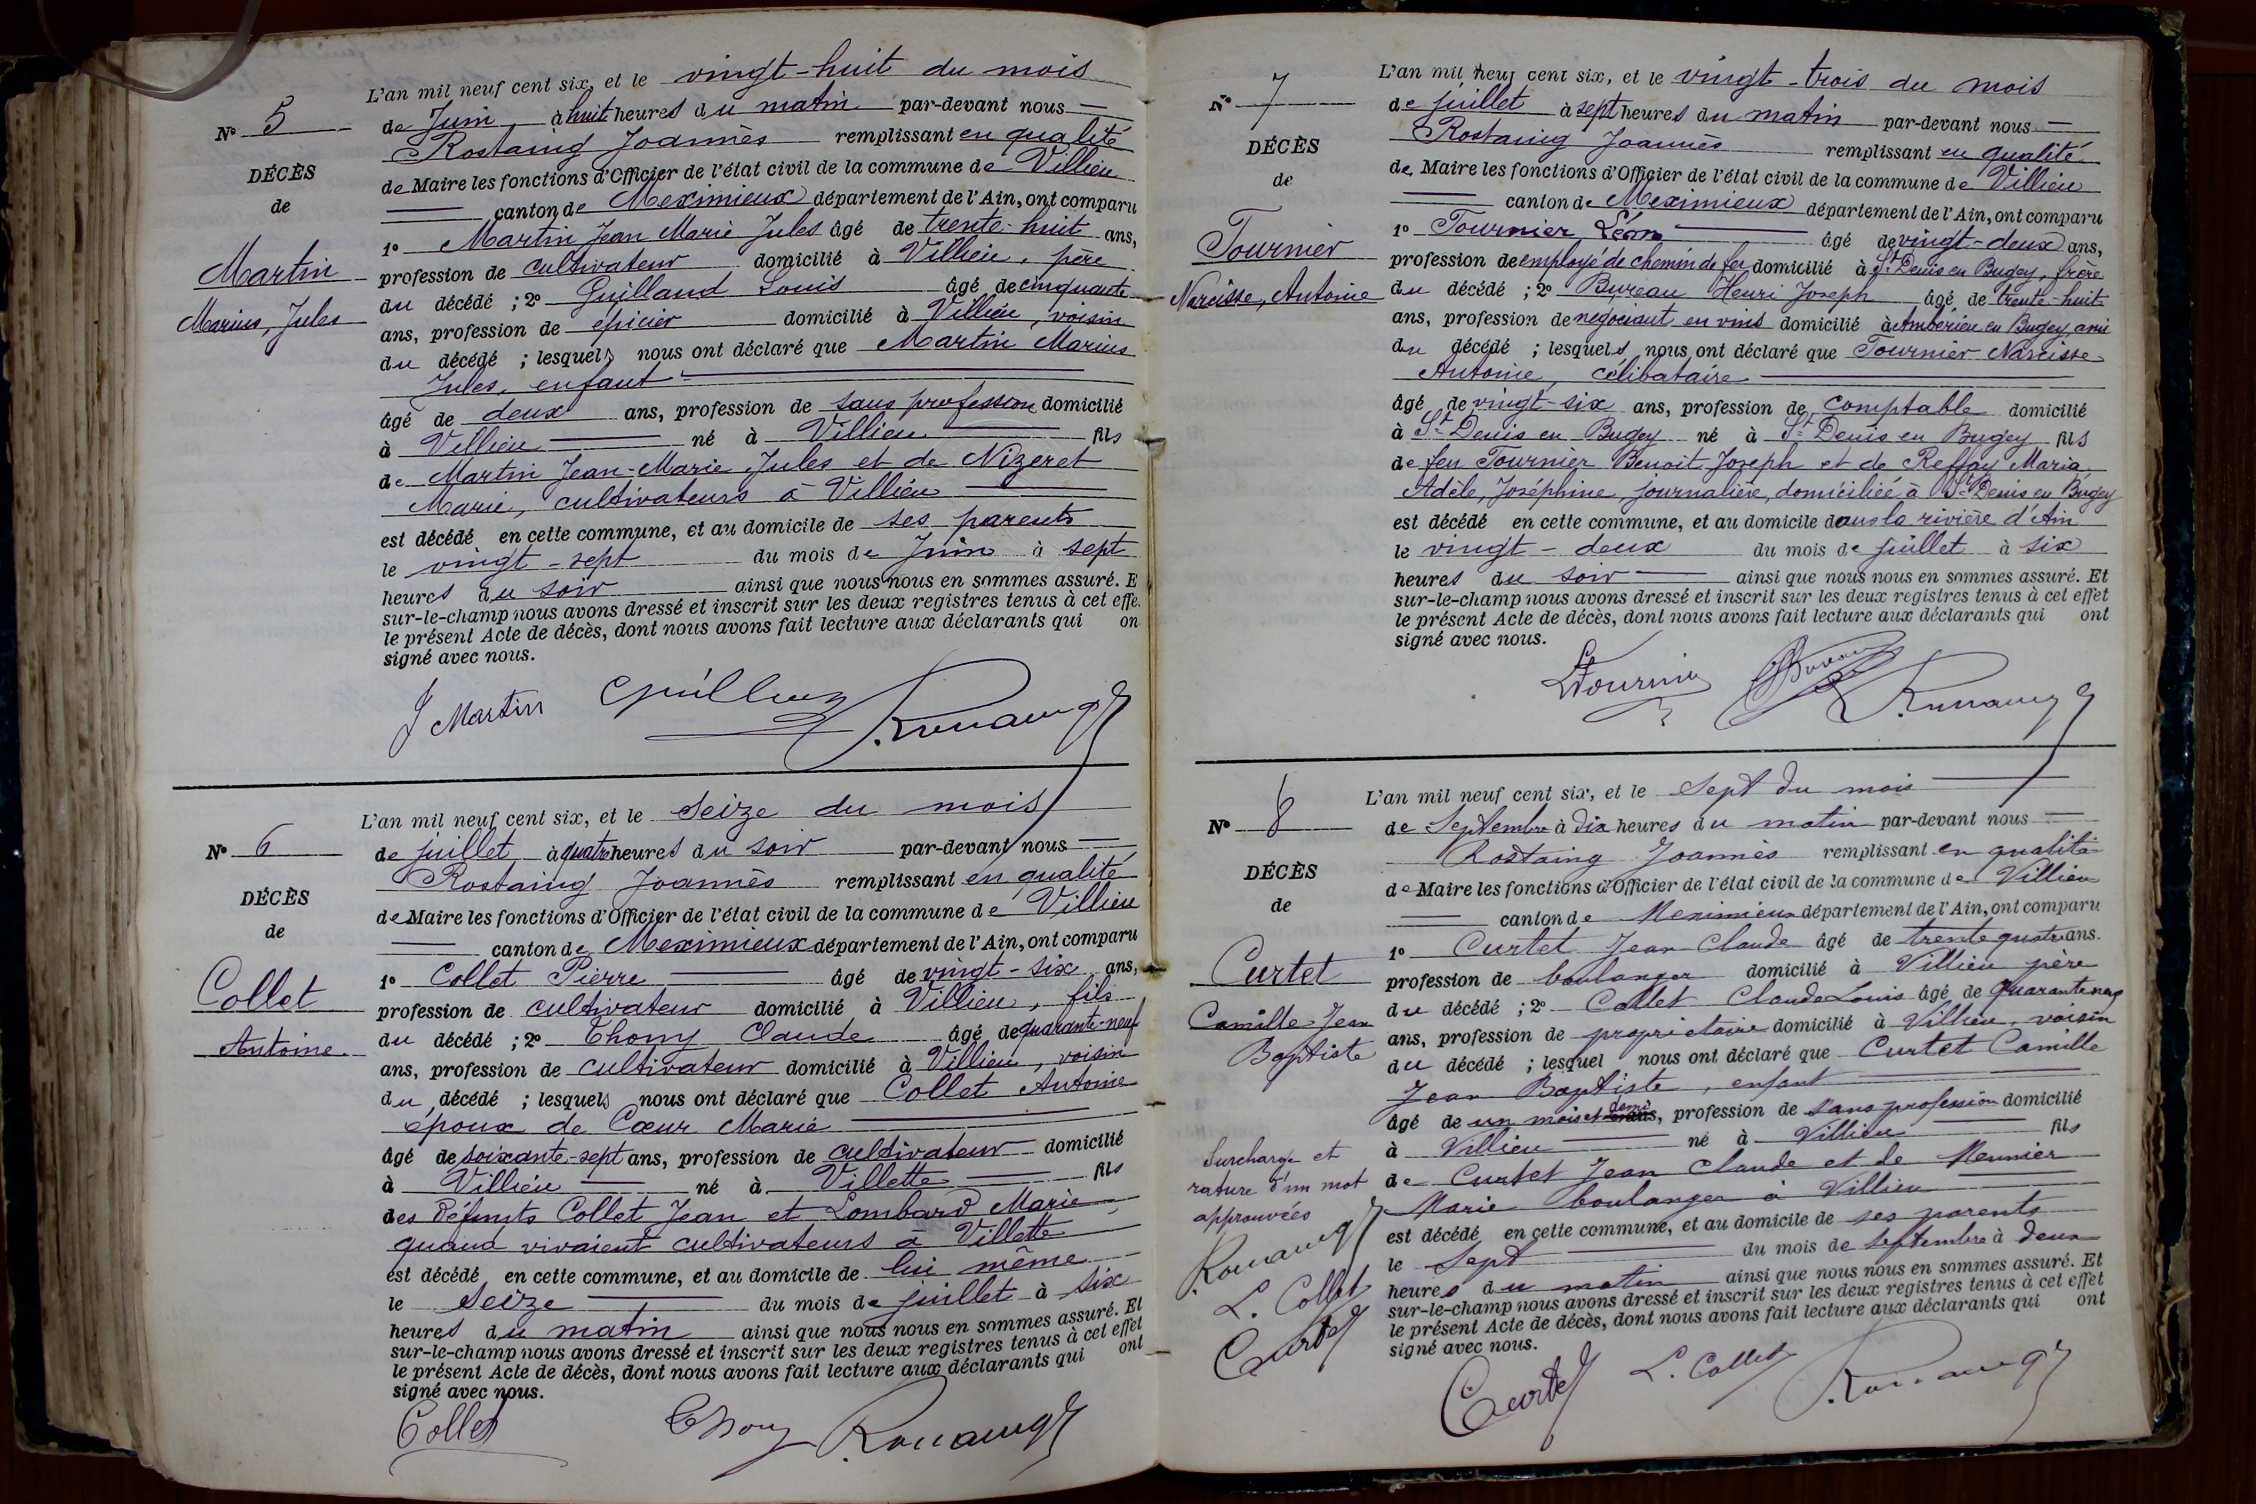 N° 5
DÉCÈS
de
Martin
Marius, Jules
L'an mil neuf cent six, et le vingt-huit du mois
de Juin à huit heures du matin par-devant nous
Rostaing Joannès remplissant en qualité
de Maire les fonctions d'Officier de l'état civil de la commune de Villieu
canton de Meximieux département de l'Ain, ont comparu
1° Martin Jean Marie Jules âgé de trente-huit ans,
profession de cultivateur domicilié à Villieu, père
du décédé ; 2° Guilland Louis âgé de cinquante
ans, profession de épicier domicilié à Villieu, voisin
du décédé ; lesquels nous ont déclaré que Martin Marius
Jules, enfant
âgé de deux ans, profession de sans profession domicilié
à Villieu né à Villieu fils
de Martin Jean-Marie Jules et de Nizeret
Marie, cultivateurs à Villieu
est décédé en cette commune, et au domicile de ses parents
le vingt-sept du mois de Juin à sept
heures du soir ainsi que nous nous en sommes assuré. E
sur-le-champ nous avons dressé et inscrit sur les deux registres tenus à cet effe
le présent Acte de décès, dont nous avons fait lecture aux déclarants qui on
signé avec nous.
J Martin
N° 6
DÉCÈS
de
Collet
Antoine
L'an mil neuf cent six, et le seize du mois
de juillet à quatre heures du soir par-devant nous
Rostaing Joannès remplissant en qualité
de Maire les fonctions d'Officier de l'état civil de la commune de Villieu
canton de Meximieux département de l'Ain, ont comparu
1° Collet Pierre âgé de vingt-six ans,
profession de cultivateur domicilié à Villieu, fils
du décédé ; 2° Thomy Claude âgé de quarante-neuf
ans, profession de cultivateur domicilié à Villieu, voisin
du décédé ; lesquels nous ont déclaré que Collet Antoine
époux de Cœur Marie
âgé de soixante-sept ans, profession de cultivateur domicilié
à Villieu né à Villette fils
des défunts Collet Jean et Lombard Marie,
quand vivaient cultivateurs à Villette
est décédé en cette commune, et au domicile de lui même
le seize du mois de juillet à six
heures du matin ainsi que nous nous en sommes assuré. Et
sur-le-champ nous avons dressé et inscrit sur les deux registres tenus à cet effet
le présent Acte de décès, dont nous avons fait lecture aux déclarants qui ont
signé avec nous.
Collet
N° 7
DÉCÈS
de
Tournier
Narcisse, Antoine
L'an mil neuf cent six, et le vingt-trois du mois
de juillet à sept heures du matin par-devant nous
Rostaing Joannès remplissant en qualité
de Maire les fonctions d'Officier de l'état civil de la commune de Villieu
canton de Meximieux département de l'Ain, ont comparu
1° Tournier Léon âgé de vingt-deux ans,
profession de employé de chemin de fer domicilié à St Denis en Bugey, frère
du décédé ; 2° Bureau Henri Joseph âgé de trente-huit
ans, profession de négociant en vins domicilié à Ambérieu en Bugey, ami
du décédé ; lesquels nous ont déclaré que Tournier Narcisse
Antoine, célibataire
âgé de vingt-six ans, profession de comptable domicilié
à St Denis en Bugey né à St Denis en Bugey fils
de feu Tournier Benoit Joseph et de Reffay Maria
Adèle, Joséphine, journalière, domiciliée à St Denis en Bugey
est décédé en cette commune, et au domicile dans la rivière d'Ain
le vingt-deux du mois de juillet à six
heures du soir ainsi que nous nous en sommes assuré. Et
sur-le-champ nous avons dressé et inscrit sur les deux registres tenus à cet effet
le présent Acte de décès, dont nous avons fait lecture aux déclarants qui ont
signé avec nous.
LTournier
N° 8
DÉCÈS
de
Curtet
Camille Jean
Baptiste
Surcharge et
rature d'un mot
approuvées
L. Collet
Curtet
L'an mil neuf cent six, et le Sept du mois
de Septembre à dix heures du matin par-devant nous
Rostaing Joannès remplissant en qualité
de Maire les fonctions d'Officier de l'état civil de la commune de Villieu
canton de Meximieux département de l'Ain, ont comparu
1° Curtet Jean Claude âgé de trente quatre ans.
profession de boulanger domicilié à Villieu père
du décédé ; 2° Collet Claude Louis âgé de quarante neuf
ans, profession de propriétaire domicilié à Villieu, voisin
du décédé ; lesquel nous ont déclaré que Curtet Camille
Jean Baptiste, enfant
âgé de un mois et demi ans, profession de sans profession domicilié
à Villieu né à Villieu fils
de Curtet Jean Claude et de Meunier
Marie boulanger à Villieu
est décédé en cette commune, et au domicile de ses parents
le Sept du mois de Septembre à deux
heures du matin ainsi que nous nous en sommes assuré. Et
sur-le-champ nous avons dressé et inscrit sur les deux registres tenus à cet effet
le présent Acte de décès, dont nous avons fait lecture aux déclarants qui ont
signé avec nous.
Curtet L. Collet